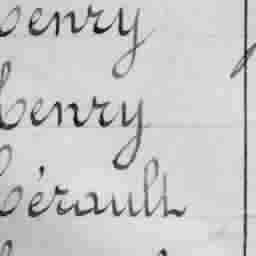 Henry
Henry
Hérault